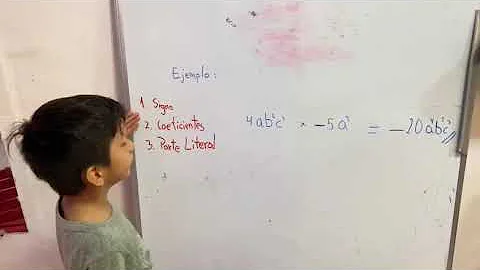 Ejemplo:
1 Signo
2. Coeficientes
3. Parte Literal
4ab²c³ × -5a³ = -20a⁴b²c³